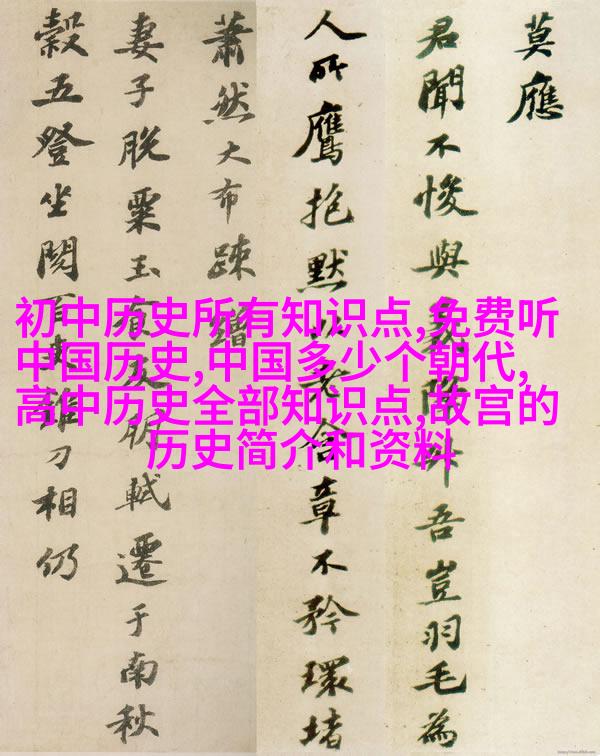 初中历史所有知识点,免费听
中国历史,中国多少个朝代,
高中历史全部知识点,故宫的
历史简介和资料
莫應
君聞不悛與義降升吾豈羽毛為
人所鷹抱默以老含章不矜環堵
蕭然大布疎繒
妻子脫粟玉食及朋軾遷于南秋
穀五登坐閱百吏錐刀相仍